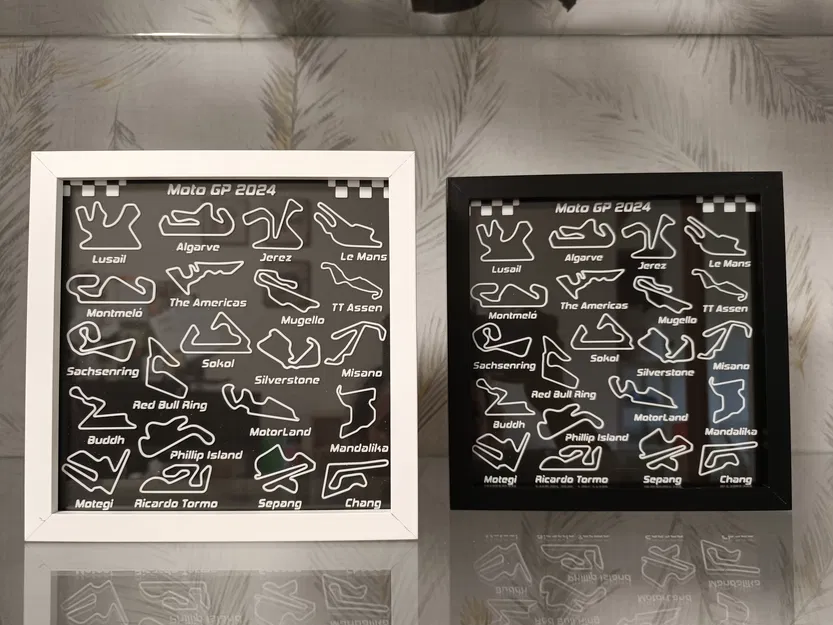 Moto GP 2024
Lusail
Algarve
Jerez
Le Mans
Montmeló
The Americas
Mugello
TT Assen
Sachsenring
Sokol
Silverstone
Misano
Red Bull Ring
Buddh
MotorLand
Mandalika
Phillip Island
Motegi
Ricardo Tormo
Sepang
Chang
Moto GP 2024
Lusail
Algarve
Jerez
Le Mans
Montmeló
The Americas
Mugello
TT Assen
Sachsenring
Sokol
Silverstone
Misano
Red Bull Ring
Buddh
MotorLand
Mandalika
Phillip Island
Motegi
Ricardo Tormo
Sepang
Chang